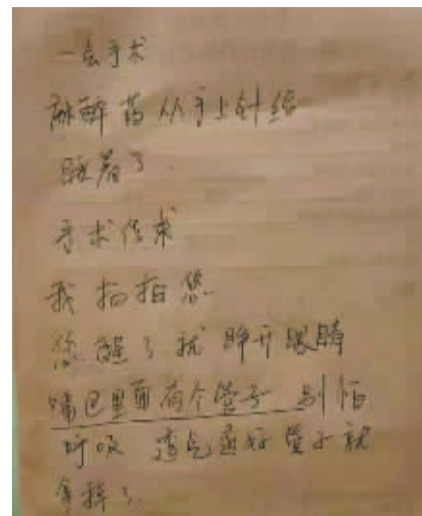 一会手术
麻醉药从手上针给
睡着了
手术结束
我拍拍您
您醒了就睁开眼睛
嘴巴里面有个管子 别怕
呼吸 透气还好 管子就
拿掉了